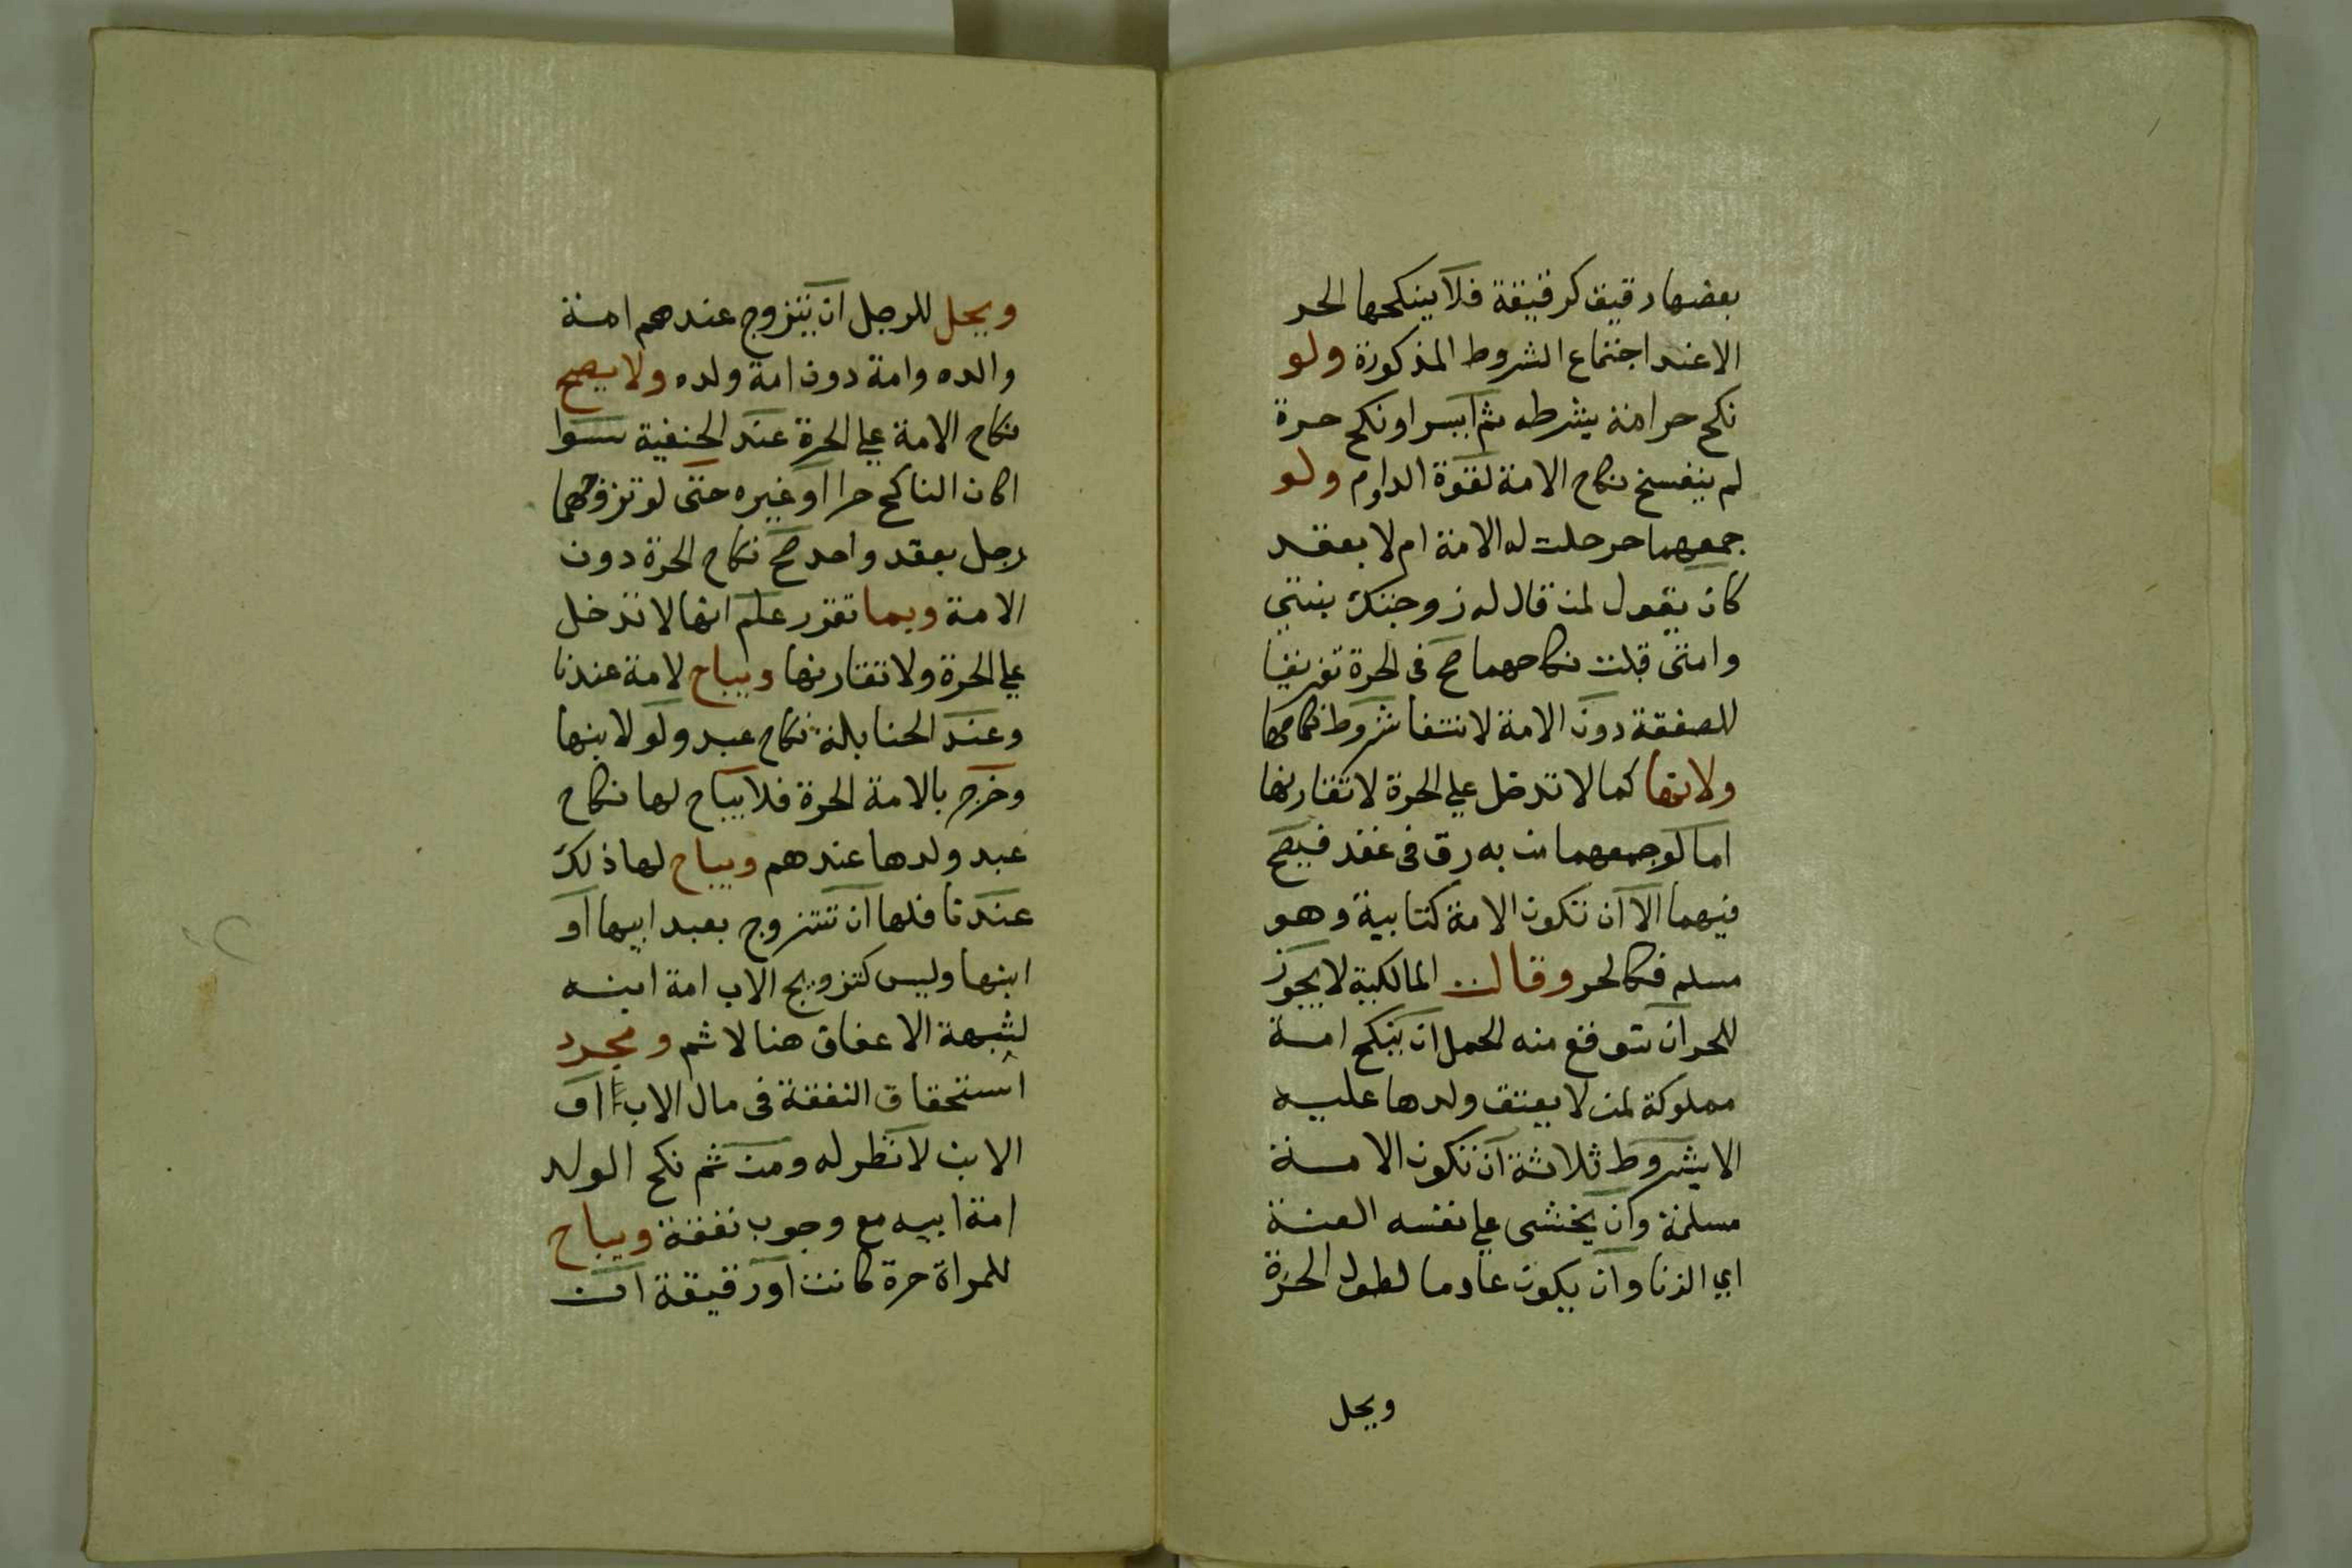 بعضها رقيق كرقيقة فلا ينكحها الحر
الا عند اجتماع الشروط المذكورة ولو
نكح حر امة بشرطه ثم ايسر او نكح حرة
لم ينفسخ نكاح الامة لقوة الدوام ولو
جمعهما حر حلت له الامة ام لا بعقد
كان يقول لمن قال له زوجتك بنتي
وامتي قبلت نكاحهما صح في الحرة تفريقا
للصفقة دون الامة لانتفا شروط نكاحها
ولانها كما لا تدخل علي الحرة لا تقارنها
اما لو جمعهما من به رق في عقد فيصح
فيهما الا ان تكون الامة كتابية وهو
مسلم فكالحر وقالت المالكية لا يجوز
للحر ان تتوقع منه الحمل ان ينكح امة
مملوكة لمن لا يعتق ولدها عليه
الا بشروط ثلاثة ان تكون الامة
مسلمة وان يخشى علي نفسه العنت
اي الزنا وان يكون عادما لطول الحرة
ويحل
ويحل للرجل ان يتزوج عندهم امة
والده وامة دون امة ولده ولا يصح
نكاح الامة علي الحرة عند الحنفية سوا
اكان الناكح حرا او غيره حتى لو تزوجهما
رجل بعقد واحد صح نكاح الحرة دون
الامة وبما تقرر علم انها لا تدخل
علي الحرة ولا تقارنها ويباح لامة عندنا
وعند الحنابلة نكاح عبد ولو لابنها
وخرج بالامة الحرة فلا يباح لها نكاح
عبد ولدها عندهم ويباح لها ذلك
عندنا فلها ان تتزوج بعبد ابيها او
ابنها وليس كتزويج الاب امة ابنه
لشبهة الاعفاف هنا لا ثم ومجرد
استحقاق النفقة في مال الاب او
الابن لا نظر له ومن ثم نكح الولد
امة ابيه مع وجوب نفقة ويباح
للمراة حرة كانت او رقيقة ان